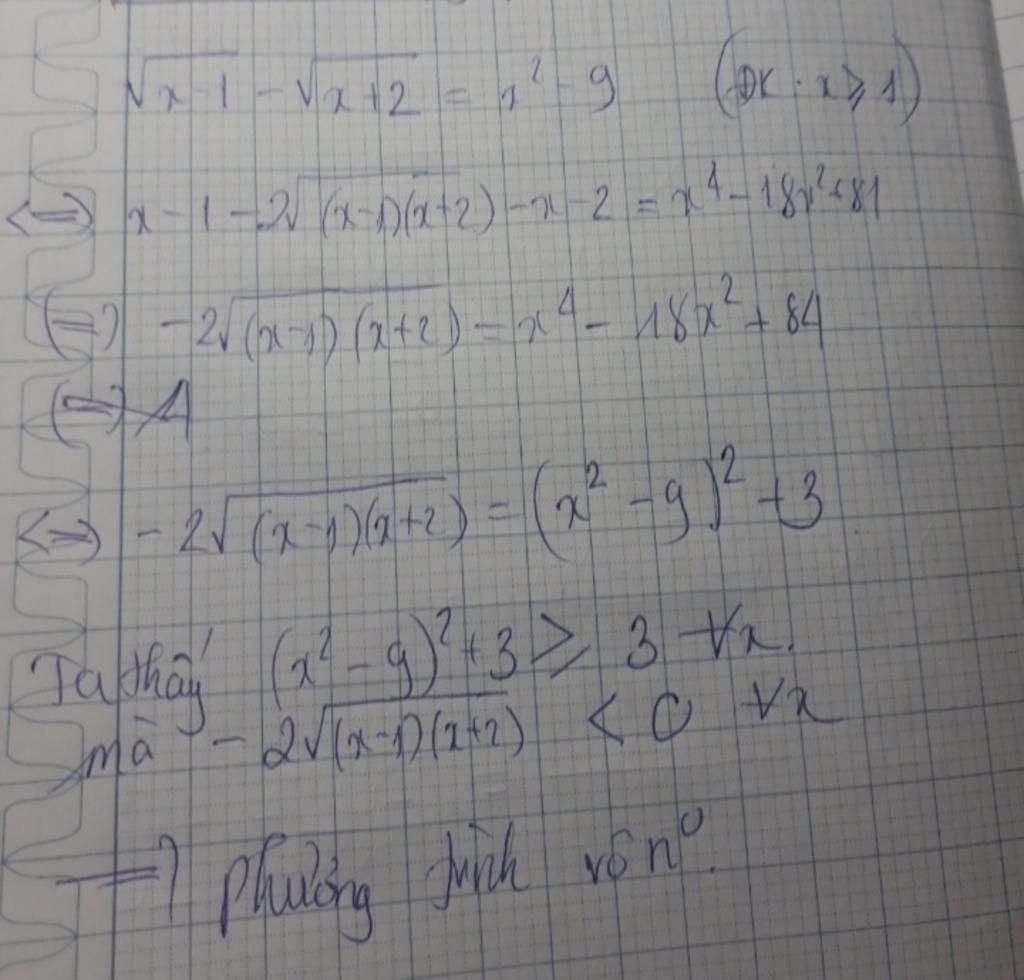 √(x-1) - √(x+2) = x² - 9 (ĐK : x ⩾ 1)
<=> x - 1 - 2√((x-1)(x+2)) - x - 2 = x⁴ - 18x² + 81
(=) -2√((x-1)(x+2)) = x⁴ - 18x² + 84
(=)
<=> -2√((x-1)(x+2)) = (x² - 9)² + 3
Ta thấy (x² - 9)² + 3 ⩾ 3 ∀x.
mà -2√((x-1)(x+2)) < 0 ∀x
=> phương trình vô n⁰.